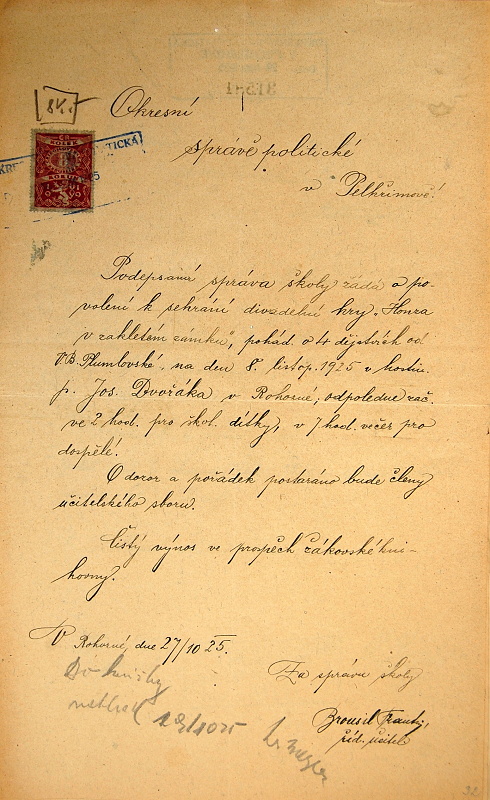 Okresní
správě politické
v Pelhřimově!
Podepsaná správa školy žádá o po-
volení k sehrání divadelní hry „Honza
v zakletém zámku", pohád. o 4 dějstvích od
V.B. Plumlovské, na den 8. listop. 1925 v hostin.
p. Jos. Dvořáka v Rohozné; odpoledne zač.
ve 2 hod. pro škol. dítky, v 7 hod. večer pro
dospělé.
O dozor a pořádek postaráno bude členy
učitelského sboru.
Čistý výnos ve prospěch žákovské kni-
hovny.
V Rohozné, dne 27/10 25.
Za správu školy
Brousil
říd. učitel
32